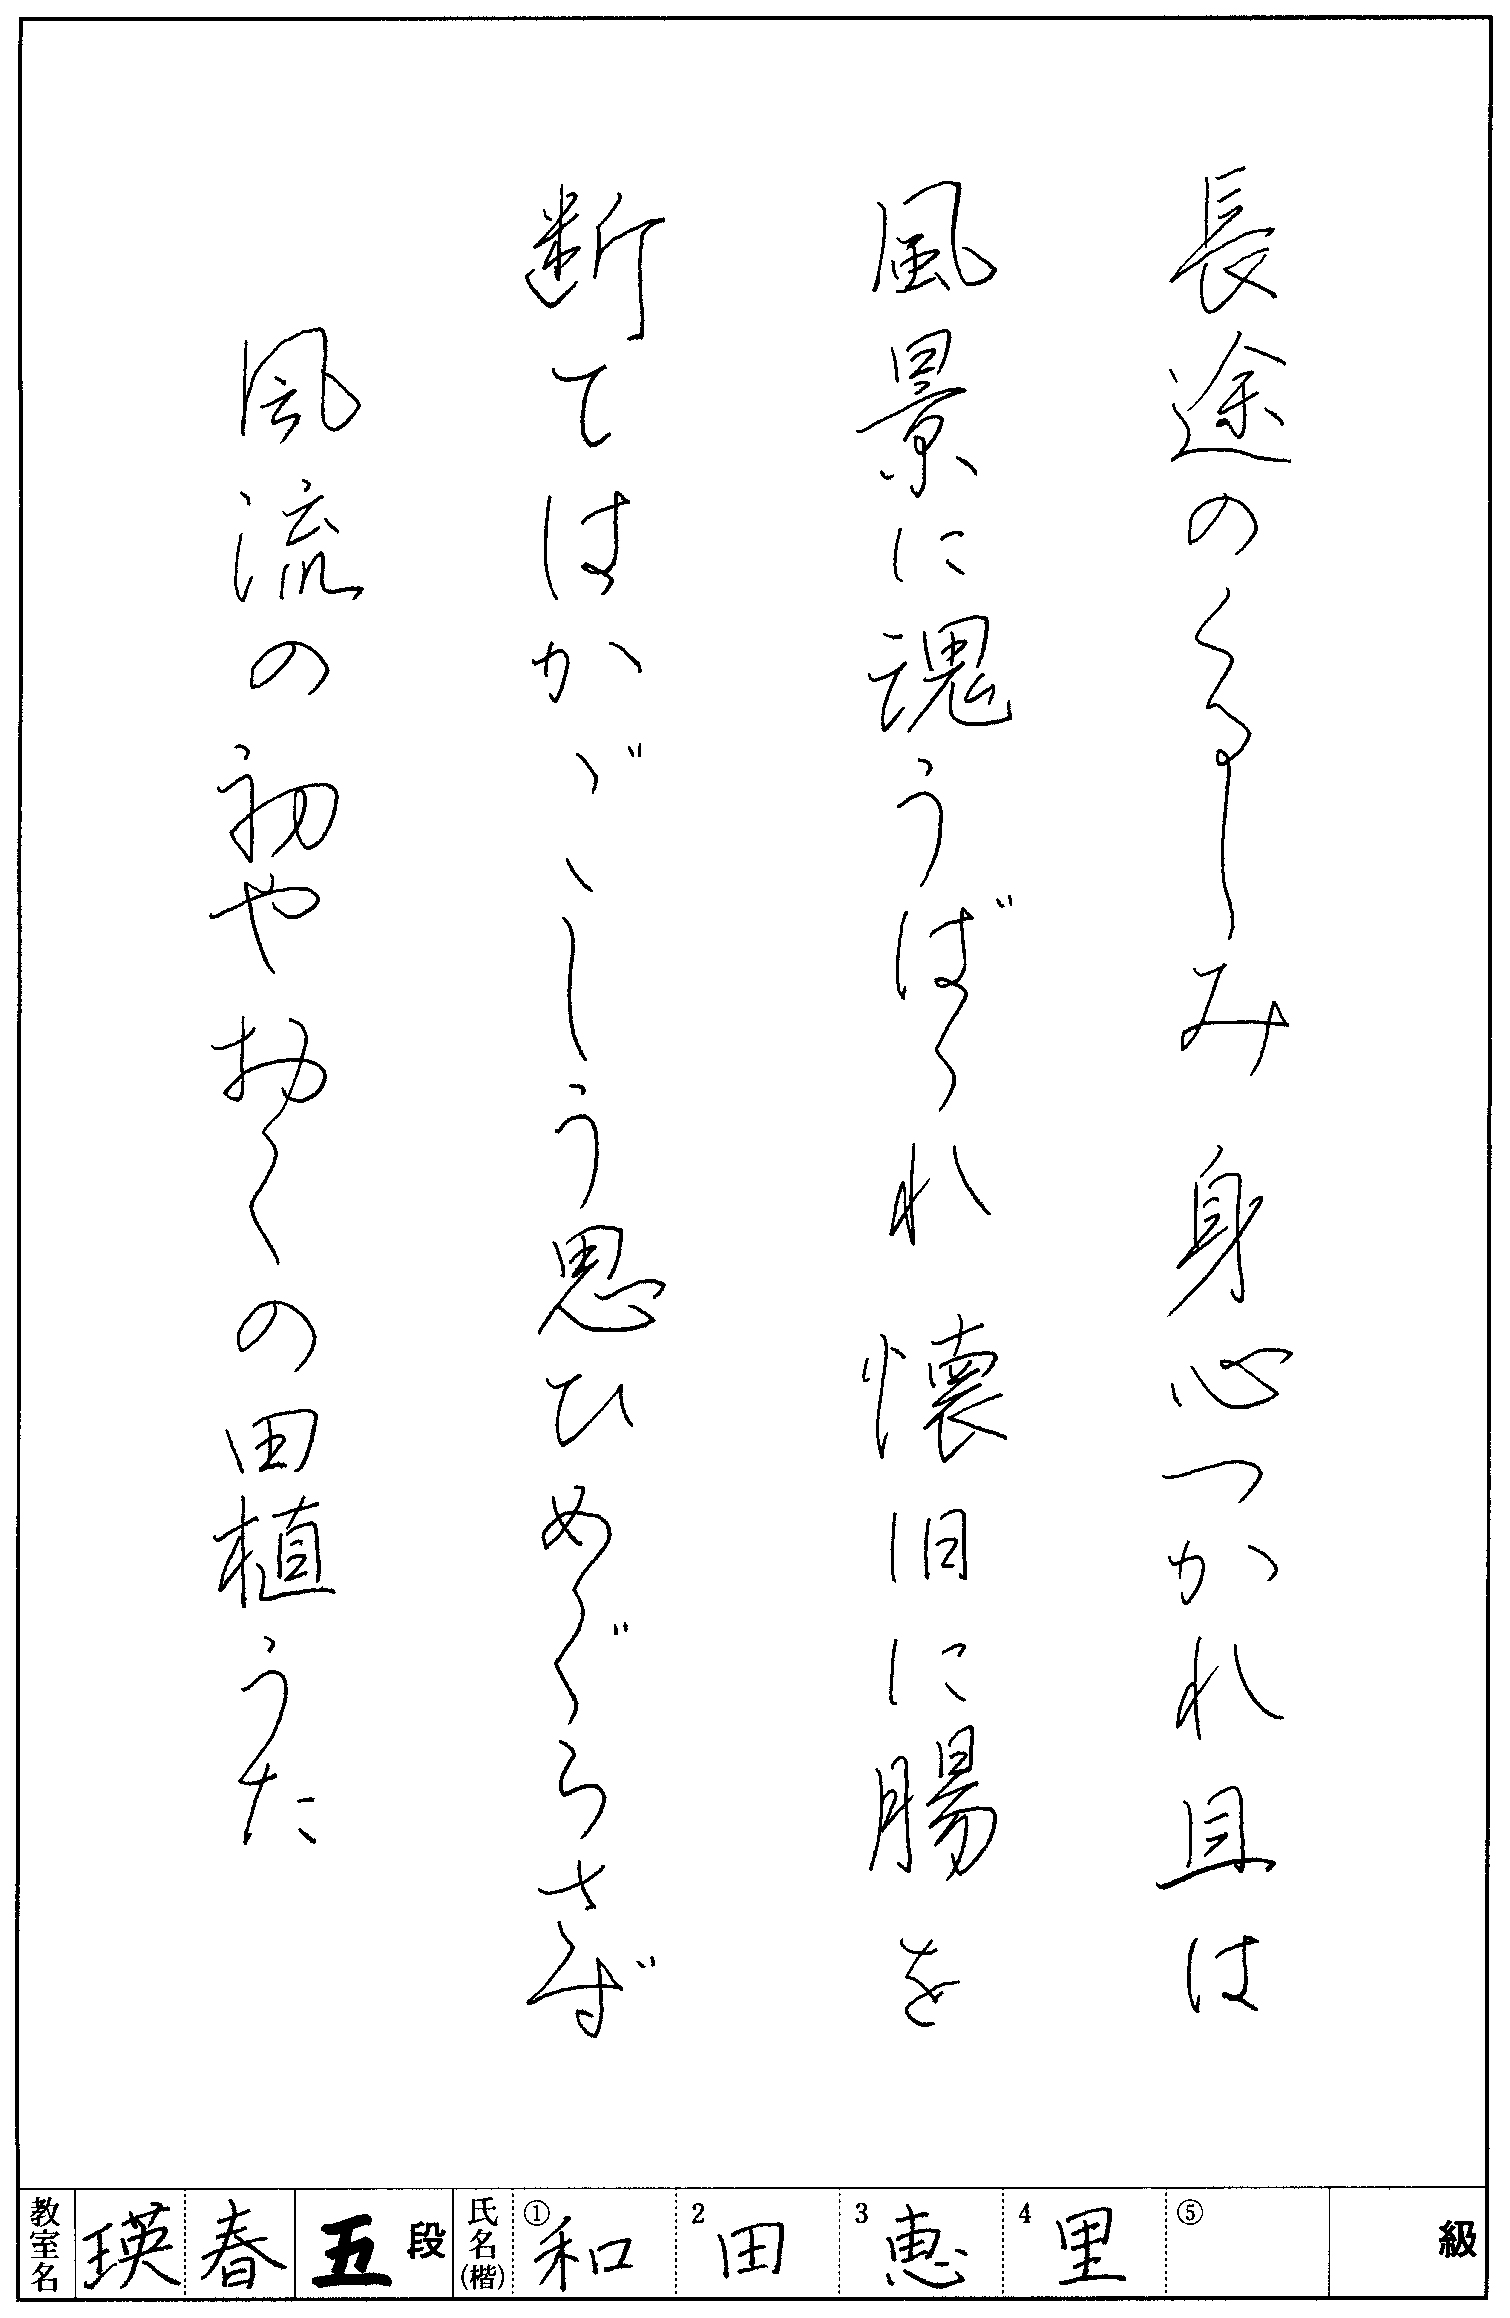 長途のくるしみ身心つかれ且は
風景に魂うばゝれ懐旧に腸を
断てはかゞゝしう思ひめぐらさず
風流の初やおくの田植うた
教室名 瑛春 五段 氏名(楷) ①和 2田 3恵 4里 ⑤ 級